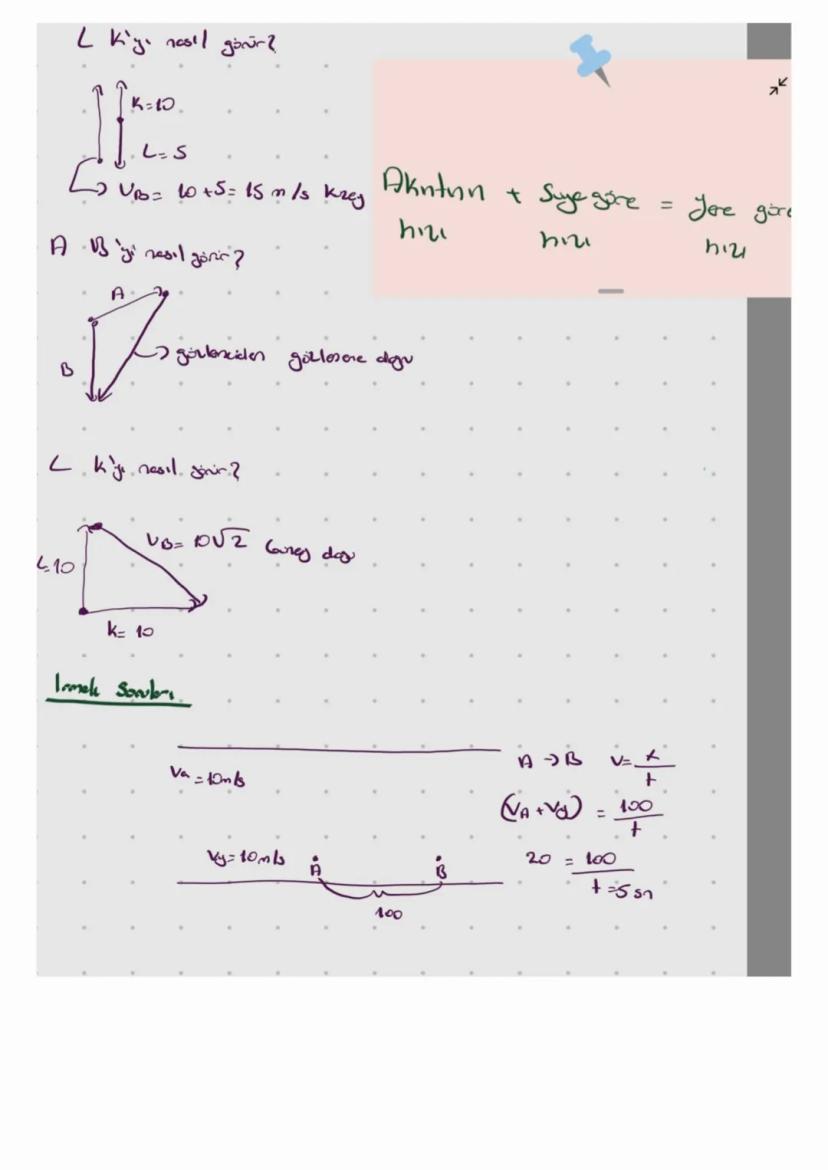 L K'yı nasıl görür?
K=10
L=5
VB= 10+5= 15 m/s Kzey
Akıntının + Suya göre = Yere göre
hızı hızı hızı
A B'yi nasıl görür?
A
B
gözlemciden gözlenene doğru
L K'yı nasıl görür?
L=10
VB= 10√2 Güney doğu
K= 10
Irmak Soruları
VA = 10m/s
A → B V= x/t
(VA + Vy) = 100/t
Vy = 10 m/s A B
20 = 100/t = 5 sn
100